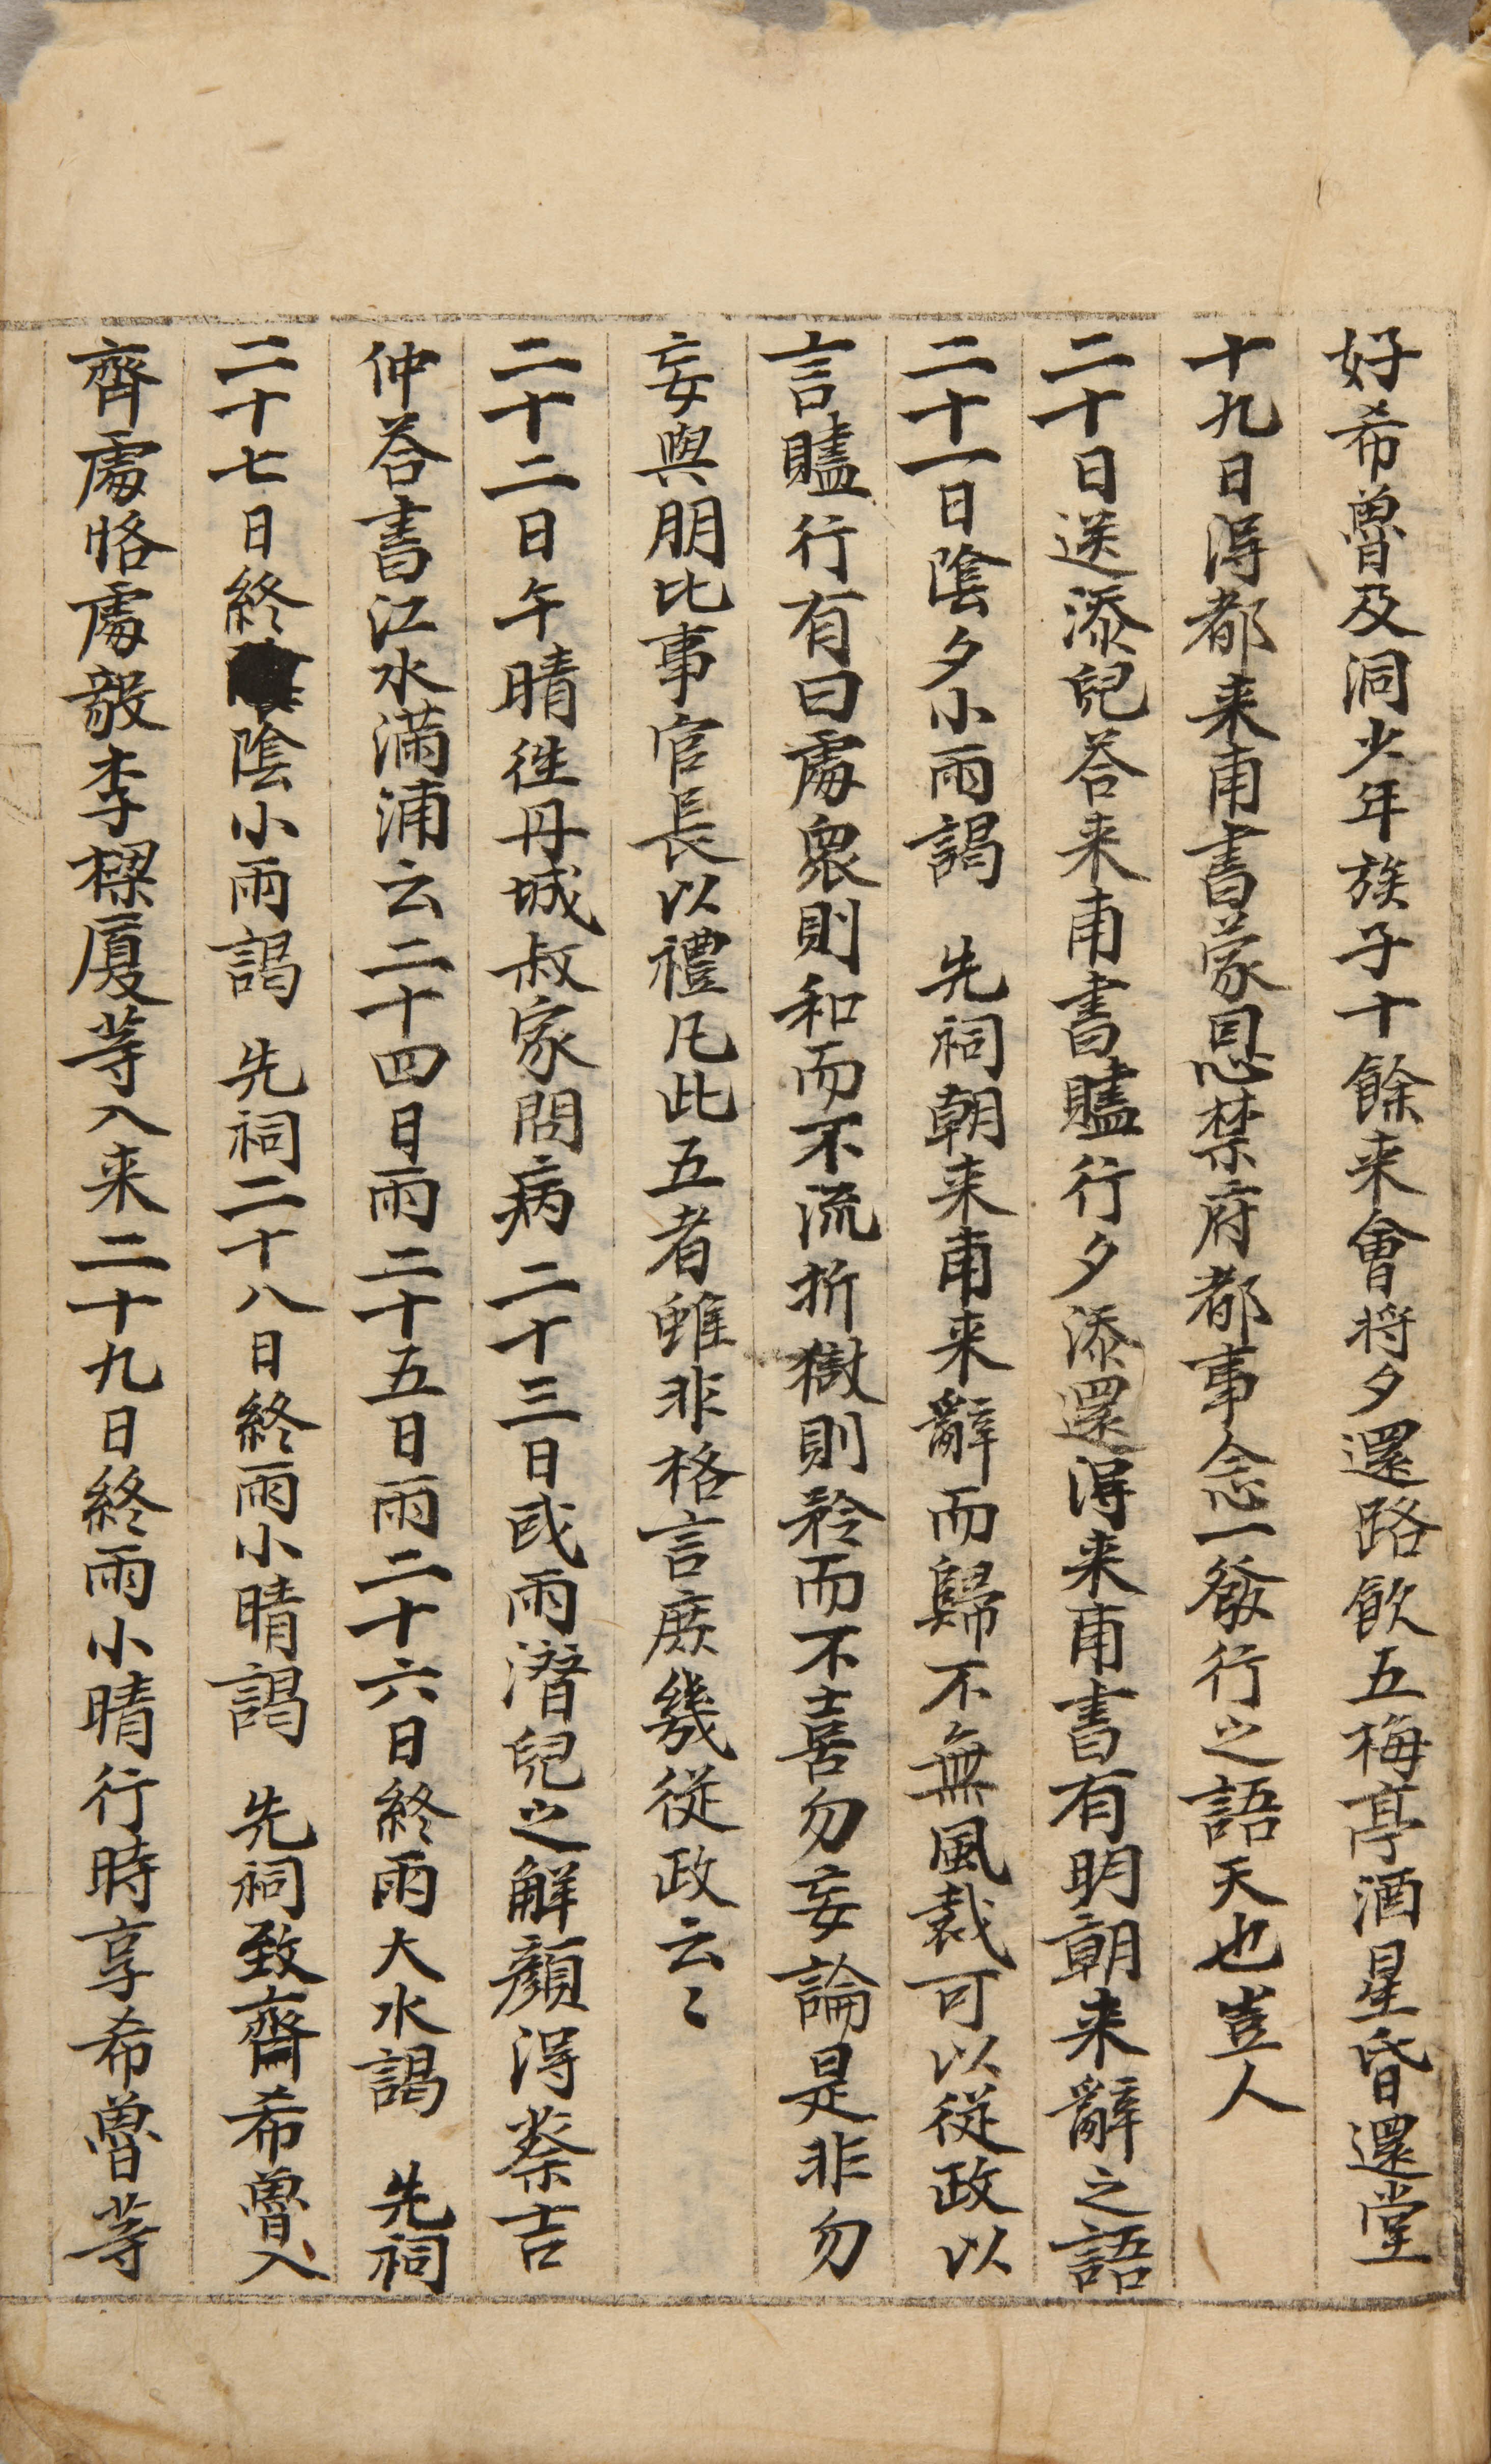 好希魯及洞少年族子十餘来會將夕還路飲五梅亭酒星昏還堂
十九日得都来甫書蒙恩禁府都事念一發行之語天也豈人
二十日送添兒答来甫書贐行夕添還得来甫書有明朝来辭之語
二十一日陰夕小雨謁 先祠朝来甫来辭而歸不無風裁可以從政以
言贐行有曰處衆則和而不流折獄則矜而不喜勿妄論是非勿
妄與朋比事官長以禮凡此五者雖非格言庶幾從政云〻
二十二日午晴徃丹城叔家問病二十三日或雨潛兒之解顔得蔡吉
仲答書江水滿浦云二十四日雨二十五日雨二十六日終雨大水謁 先祠
二十七日終陰小雨謁 先祠二十八日終雨小晴謁 先祠致齋希魯入
齊處恪處毅李樑廈等入来二十九日終雨小晴行時享希魯等